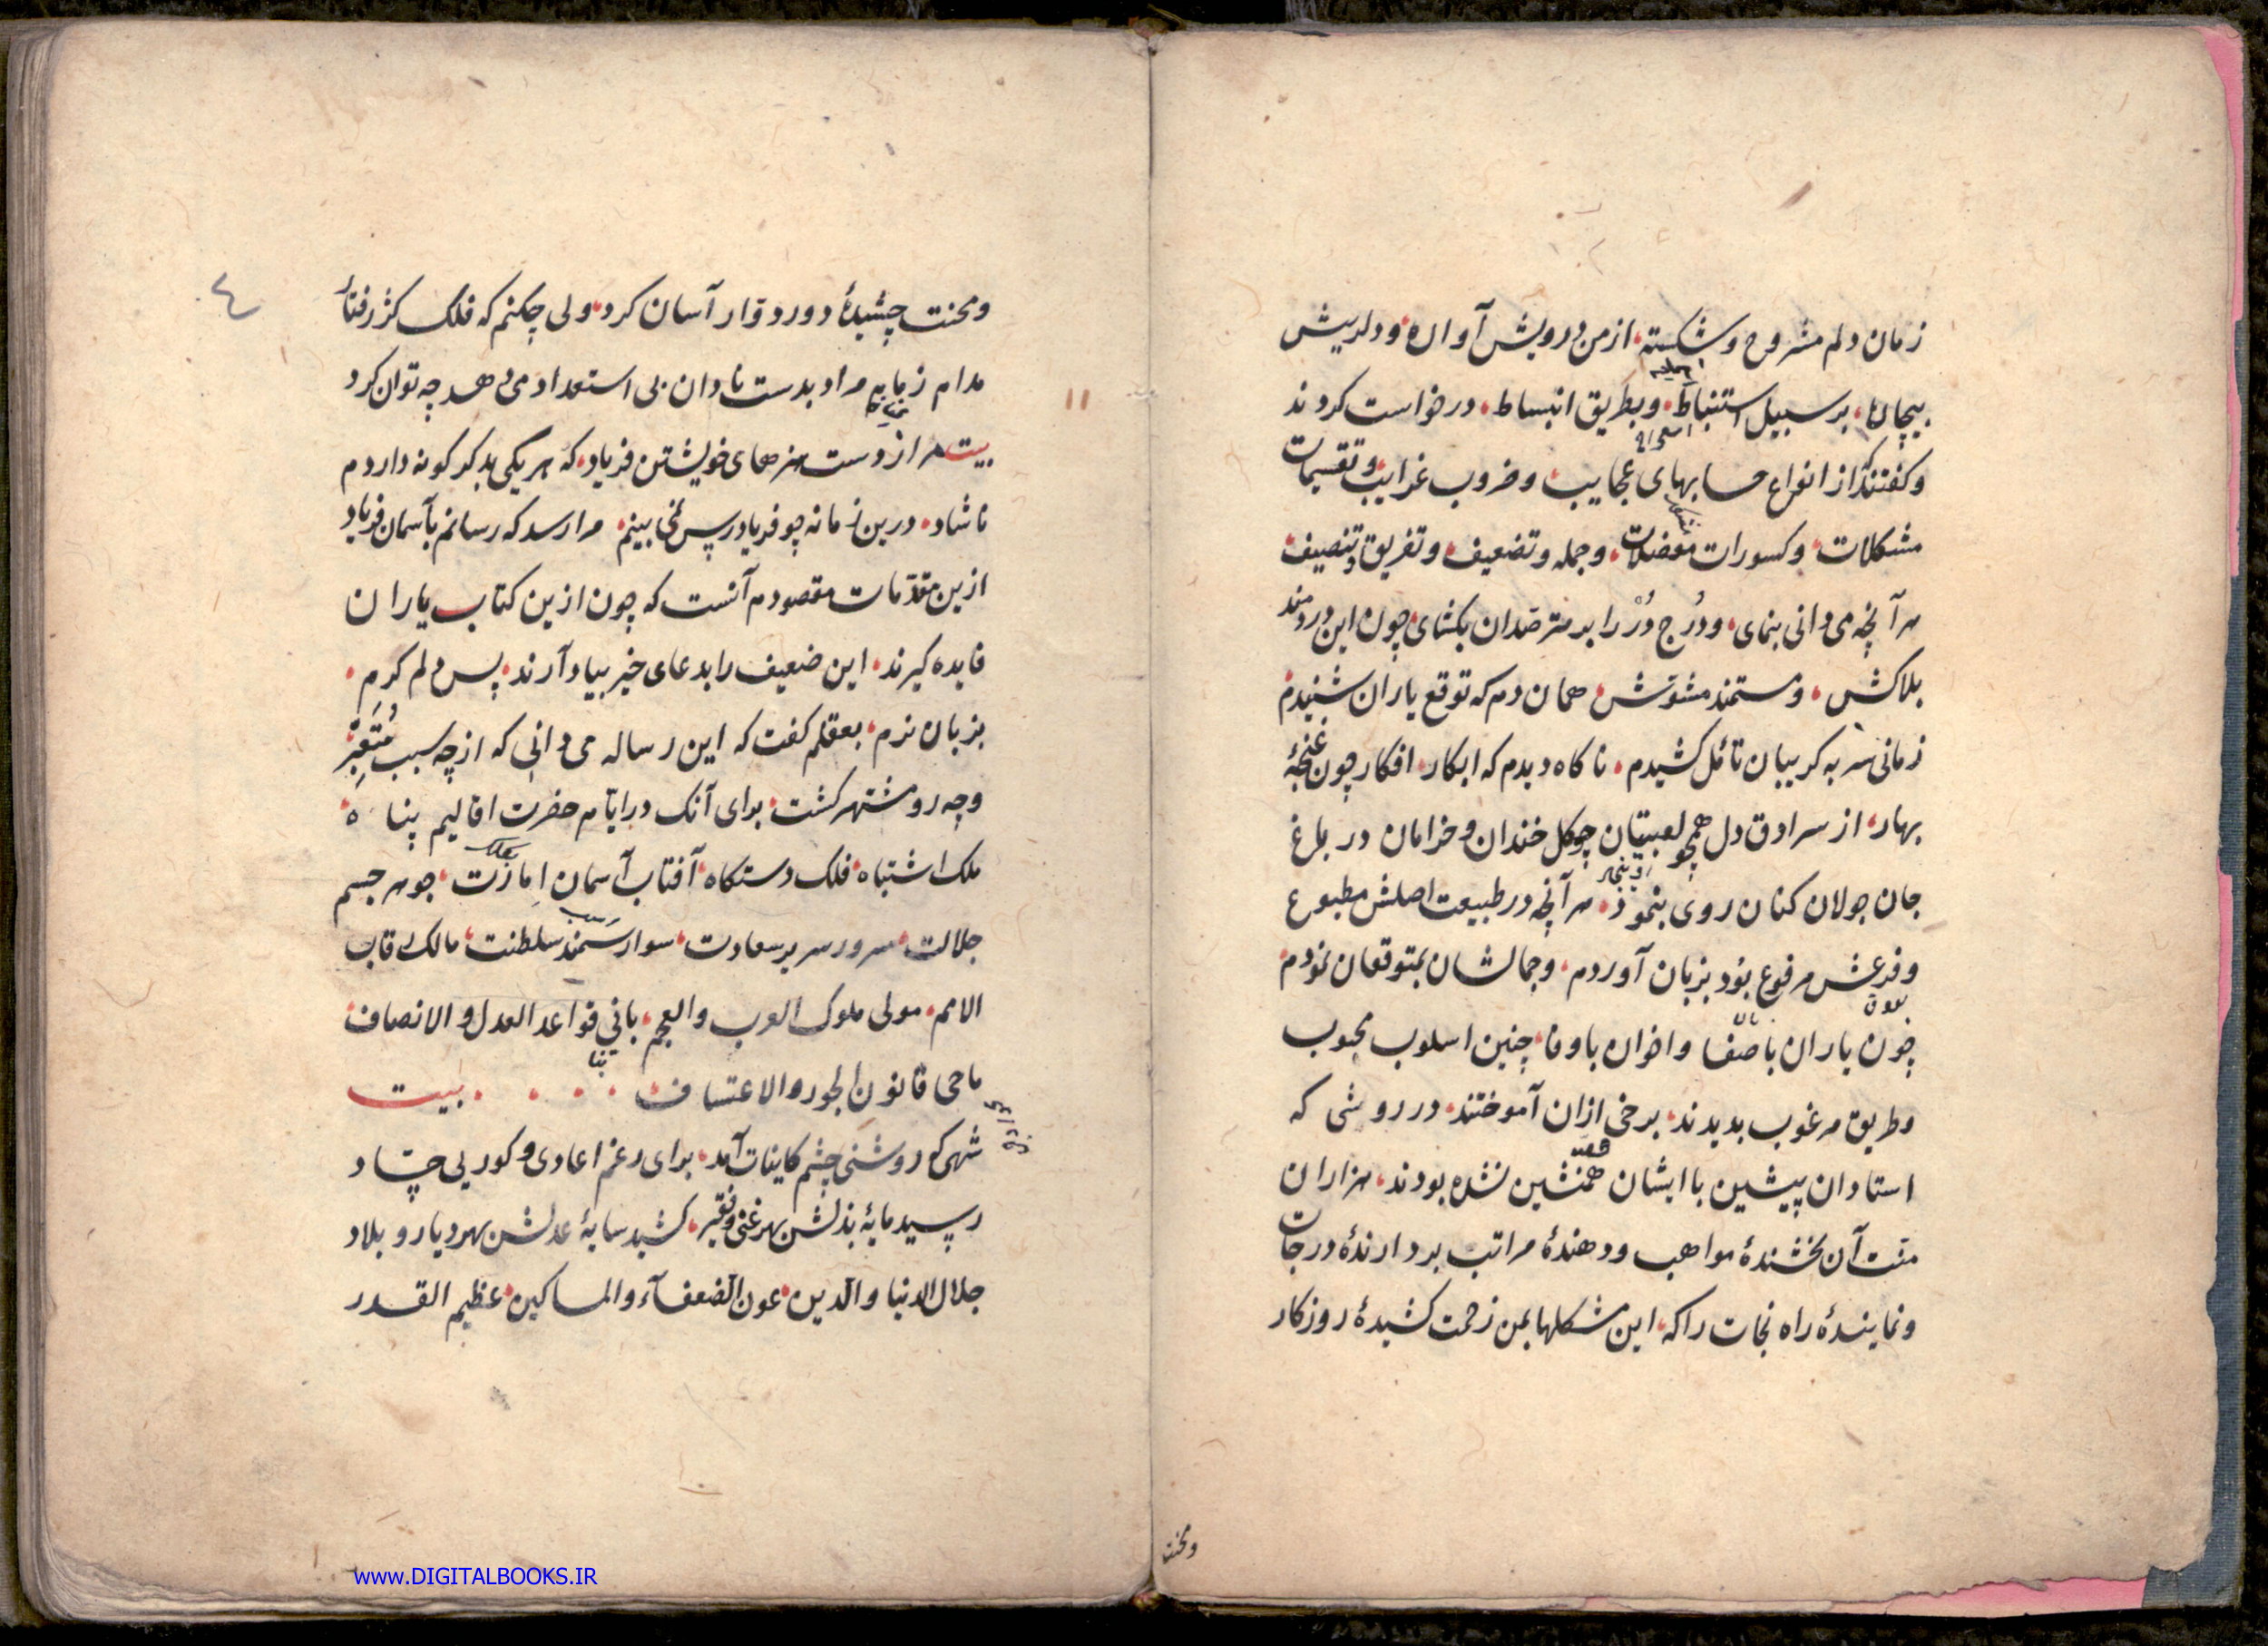 زمان دلم مشروح و شکسته، از من درویش آواره و دلریش
بیچاره، بر سبیل استنباط، و بطریق انبساط، درخواست کردند
و کفتند که از انواع حسابهای عجایب، و ضروب غرایب و تقسیمات
مشکلات، و کسورات معضلات، و جمله و تضعیف، و تفریق و تنصیف،
هر آنچه می دانی بنمای، و دُرج دُرْ را بر مترصدان بکشای، چون این دردمند
بلاکش، و مستمند مشوّش، همان دم که توقع یاران شنیدم
زمانی سر به کریبان تأمّل کشیدم، ناکاه دیدم که ابکار افکار چون غنچهٔ
بهار، از سرادق دل همچو لعبتان چکل خندان و خرامان در باغ
جان جولان کنان روی بنمود، هر آنچه در طبیعت اصلش مطبوع
و فرعش مرفوع بود بزبان آوردم، و جمالشان بمتوقعان نمودم،
چون یاران با صفا و اخوان با وفا، چنین اسلوب محبوب
و طریق مرغوب بدیدند، برخی ازان آموختند، در روشی که
استادان پیشین با ایشان همنشین نشده بودند، هزاران
منت آن بخشندهٔ مواهب و دهندهٔ مراتب بردارندهٔ درجات
و نمایندهٔ راه نجات را که، این مشکلها بمن زحمت کشیدهٔ روزکار
و محنت
٤
۱۱
و محنت چشیدهٔ دور دوّار آسان کرد، ولی چکنم که فلک کژ رفتار
مدام زمام مراد بدست نادان بی استعداد می دهد چه توان کرد
بیت مرا از دست هنرهای خویشتن فریاد، که هر یکی بدکر کونه داردم
ناشاد، درین زمانه چو فریادرس نمی بینم، مرا رسد که رسانم بآسمان فریاد
ازین مقدّمات مقصودم آنست که چون ازین کتاب یاران
فایده کیرند، این ضعیف را بدعای خیر بیاد آرند، پس دلم کرم،
بزبان نرم، بعقلم کفت که این رساله می دانی که از چه سبب
و چه رو مشتهر کشت، برای آنک در ایّام حضرت اقالیم پناه،
ملک اشتباه، فلک دستکاه، آفتاب آسمان امارت، جوهر جسم
جلالت، سرور سریر سعادت، سوار سمند سلطنت، مالک رقاب
الامم، مولی ملوک العرب والعجم، بانی قواعد العدل والانصاف،
ماحی قانون الجور والاعتساف، بیت
شهی که روشنی چشم کاینات آمد، برای رغم اعادی و کوری حسّاد
رسید مایهٔ بذلش بهر غنی و فقیر، کشید سایهٔ عدلش بهر دیار و بلاد
جلال الدنیا والدین، عون الضعفآء والمساکین، عظیم القدر
www.DIGITALBOOKS.IR